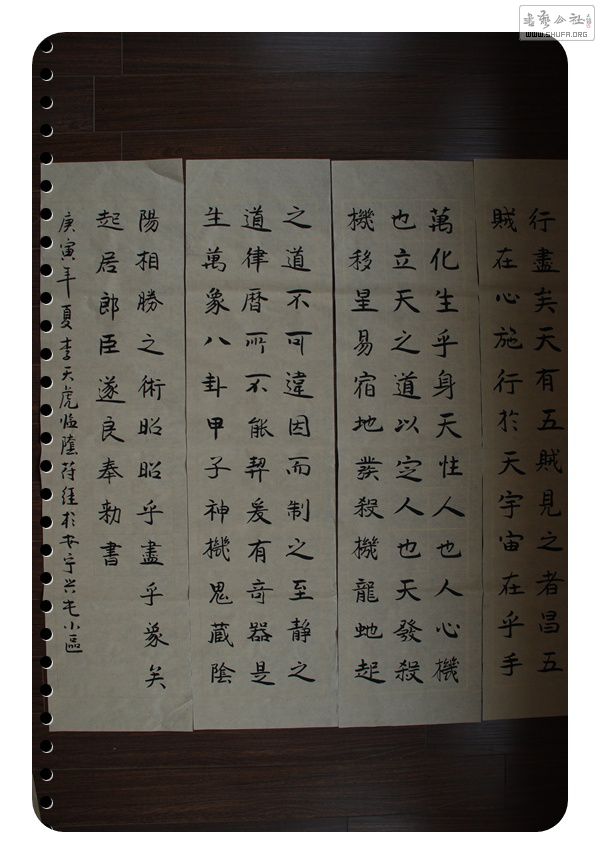 書藝公社
WWW.SHUFA.ORG
行盡矣天有五賊見之者昌五
賊在心施行於天宇宙在乎手
萬化生乎身天性人也人心機
也立天之道以定人也天發殺
機移星易宿地發殺機龍虵起
之道不可違因而制之至静之
道律曆所不能契爰有奇器是
生萬象八卦甲子神機鬼藏陰
陽相勝之術昭昭乎盡乎象矣
起居郎臣遂良奉勅書
庚寅年夏李天虎临蔭符经於宁兴屯小區